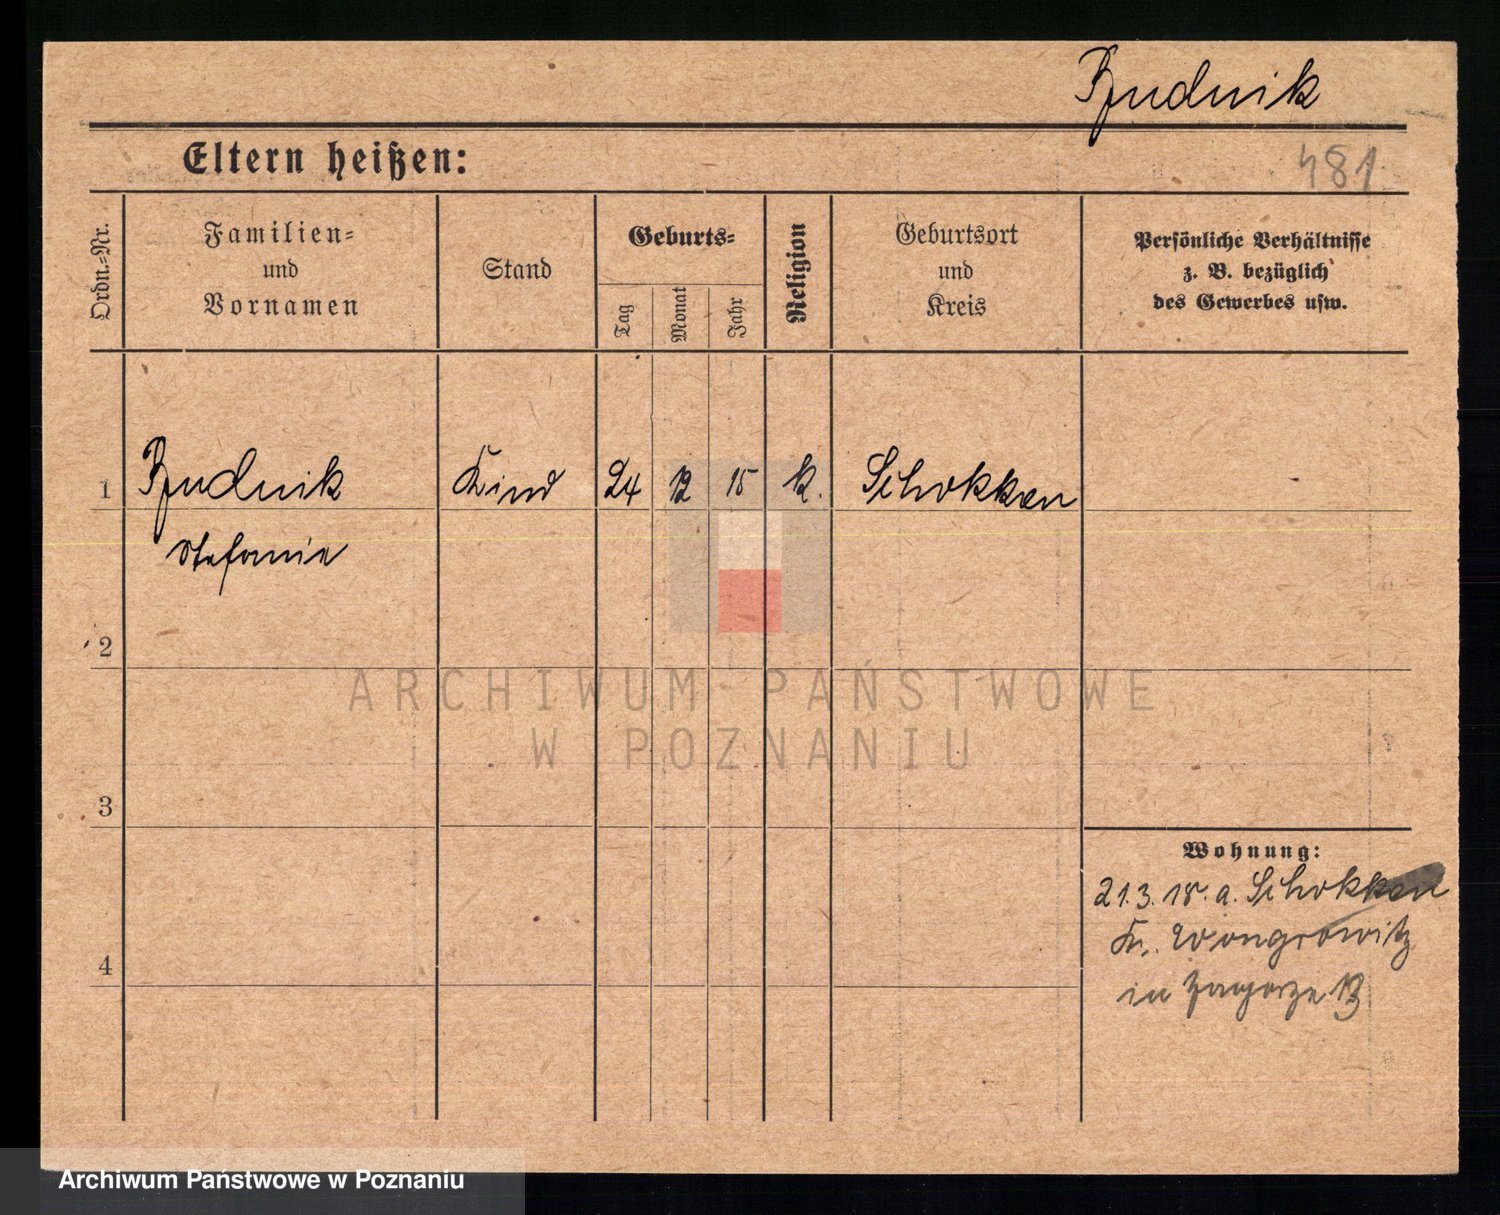 Rudnik
Eltern heißen:
481
Ordn.-Nr.
Familien-
und
Vornamen
Stand
Geburts-
Tag
Monat
Jahr
Religion
Geburtsort
und
Kreis
Persönliche Verhältnisse
z. B. bezüglich
des Gewerbes usw.
1
Rudnik
Kind
24
12
15
k.
Schokken
Stefanie
2
ARCHIWUM PAŃSTWOWE
W POZNANIU
3
Wohnung:
21.3.18. a. Schokken
Kr. Wongrowitz
4
in Zagorze 13
Archiwum Państwowe w Poznaniu